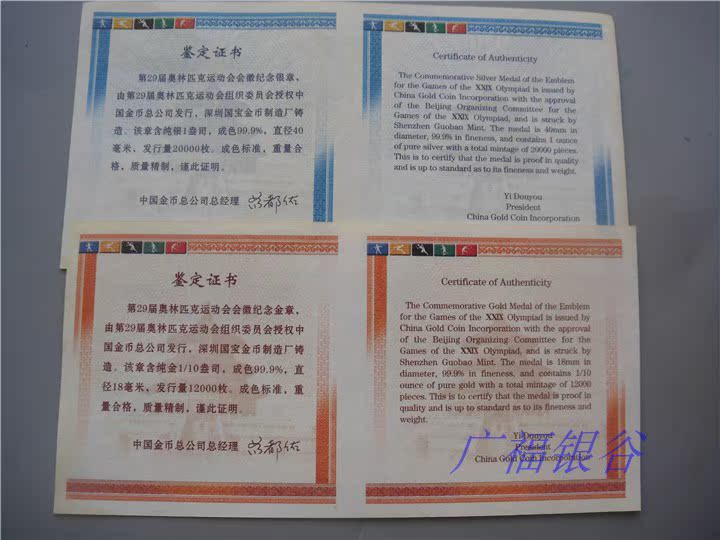 鉴定证书
第29届奥林匹克运动会会徽纪念银章,
由第29届奥林匹克运动会组织委员会授权中
国金币总公司发行, 深圳国宝金币制造厂铸
造。该章含纯银1盎司, 成色99.9%, 直径40
毫米、发行量20000枚。成色标准, 重量合
格, 质量精制, 谨此证明。
中国金币总公司总经理
Certificate of Authenticity
The Commemorative Silver Medal of the Emblem
for the Games of the XXIX Olympiad is issued by
China Gold Coin Incorporation with the approval
of the Beijing Organizing Committee for the
Games of the XXIX Olympiad, and is struck by
Shenzhen Guobao Mint. The medal is 40mm in
diameter, 99.9% in fineness, and contains 1 ounce
of pure silver with a total mintage of 20000 pieces.
This is to certify that the medal is proof in quality
and is up to standard as to its fineness and weight.
Yi Douyou
President
China Gold Coin Incorporation
鉴定证书
第29届奥林匹克运动会会徽纪念金章,
由第29届奥林匹克运动会组织委员会授权中
国金币总公司发行, 深圳国宝金币制造厂铸
造。该章含纯金1/10盎司, 成色99.9%, 直
径18毫米, 发行量12000枚。成色标准, 重
量合格, 质量精制, 谨此证明。
中国金币总公司总经理
Certificate of Authenticity
The Commemorative Gold Medal of the Emblem
for the Games of the XXIX Olympiad is issued by
China Gold Coin Incorporation with the approval
of the Beijing Organizing Committee for the
Games of the XXIX Olympiad, and is struck by
Shenzhen Guobao Mint. The medal is 18mm in
diameter, 99.9% in fineness, and contains 1/10
ounce of pure gold with a total mintage of 12000
pieces. This is to certify that the medal is proof in
quality and is up to standard as to its fineness and
weight.
Yi Douyou
President
China Gold Coin Incorporation
广福银谷